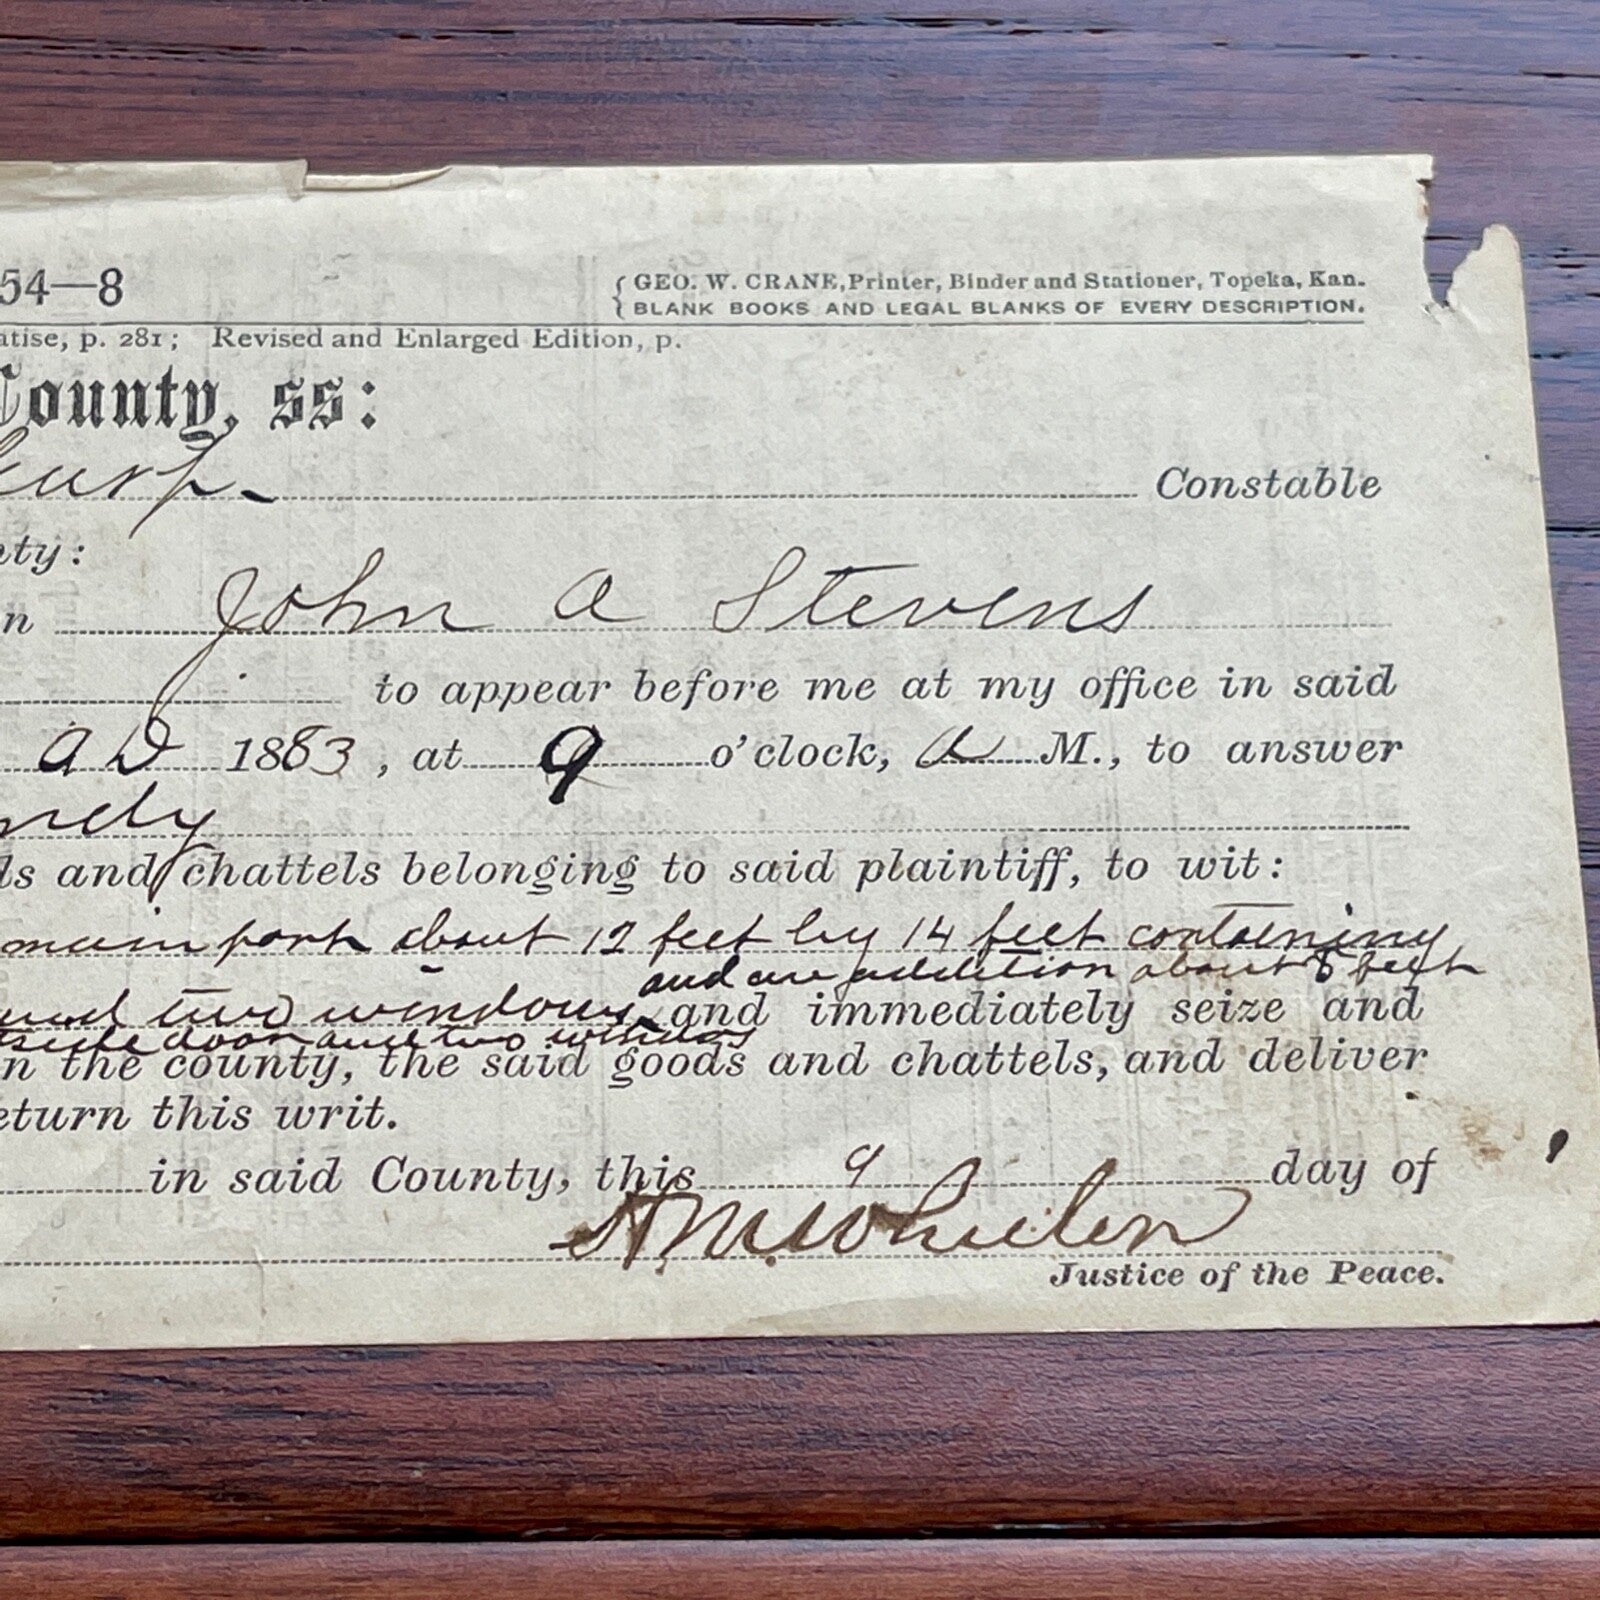 54—8
GEO. W. CRANE, Printer, Binder and Stationer, Topeka, Kan.
BLANK BOOKS AND LEGAL BLANKS OF EVERY DESCRIPTION.
atise, p. 281; Revised and Enlarged Edition, p.
County, ss:
Constable
nty:
n John A Stevens
to appear before me at my office in said
A D 1883, at 9 o'clock, A M., to answer
ndy
ls and chattels belonging to said plaintiff, to wit:
main part about 12 feet by 14 feet containing
and an addition about 8 feet
and two windows and immediately seize and
tside door and two windows
n the county, the said goods and chattels, and deliver
eturn this writ.
in said County, this 9 day of
Wheeler
Justice of the Peace.